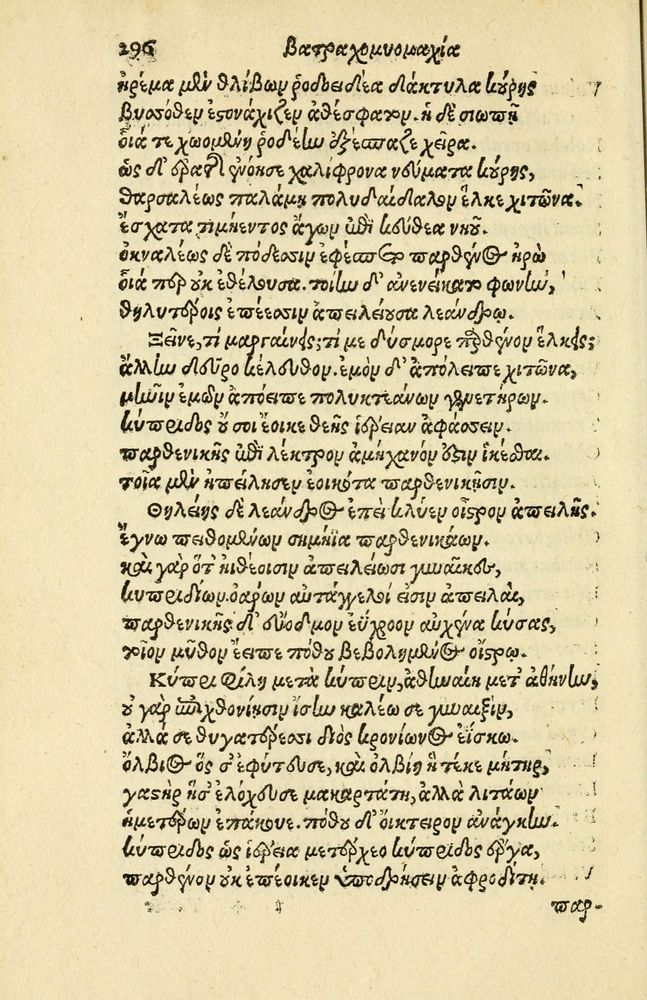 296 Βατραχομυομαχία
ἠρέμα μὲν θλίβων ῥοδοειδέα δάκτυλα κούρης
βυσσόθεν ἐστονάχιζεν ἀθέσφατον. ἡ δὲ σιωπῇ
οἷά τε χωομένη ῥοδέην ἐξέσπασε χεῖρα.
ὡς δ' ἐρατῆς ἐνόησε χαλίφρονα νεύματα κούρης,
θαρσαλέως παλάμῃ πολυδαίδαλον ἕλκε χιτῶνα.
ἔσχατα τιμήεντος ἄγων ἐπὶ κεύθεα νηοῦ.
ὀκναλέως δὲ πόδεσσιν ἐφέσπετο παρθένος ἡρὼ
οἷά περ οὐκ ἐθέλουσα. τοίην δ' ἀνενείκατο φωνὴν,
θηλυτέροις ἐπέεσσιν ἀπειλείουσα λεάνδρῳ.
Ξεῖνε, τί μαργαίνεις; τί με δύσμορε παρθένον ἕλκεις;
ἄλλην δεῦρο κέλευθον. ἐμὸν δ' ἀπόλειπε χιτῶνα,
μῆνιν ἐμῶν ἀπόειπε πολυκτεάνων γενετήρων.
κύπριδος οὔ σοι ἔοικε θεῆς ἱέρειαν ἀφάσσειν.
παρθενικῆς ἐπὶ λέκτρον ἀμήχανόν ἐστιν ἱκέσθαι.
τοῖα μὲν ἠπείλησεν ἐοικότα παρθενικῇσιν.
Θηλείης δὲ λέανδρος ἐπεὶ κλύεν οἶστρον ἀπειλῆς.
ἔγνω πειθομένων σημήϊα παρθενικάων.
καὶ γὰρ ὅτ' ἠϊθέοισιν ἀπειλείωσι γυναῖκες,
κυπριδίων ὀάρων αὐτάγγελοί εἰσιν ἀπειλαὶ,
παρθενικῆς δ' εὔοδμον εὔχροον αὐχένα κύσας,
τοῖον μῦθον ἔειπε πόθου βεβολημένος οἴστρῳ.
Κύπρι φίλη μετὰ κύπριν, ἀθηναίη μετ' ἀθήνην,
οὐ γὰρ ἐπιχθονίῃσιν ἴσην καλέω σε γυναιξὶν,
ἀλλά σε θυγατέρεσσι διὸς κρονίωνος ἐΐσκω.
ὄλβιος ὅς σ' ἐφύτευσε, καὶ ὀλβίη ἣ τέκε μήτηρ,
γαστὴρ ἥ σ' ἐλόχευσε μακαρτάτη, ἀλλὰ λιτάων
ἡμετέρων ἐπάκουε. πόθου δ' οἴκτειρον ἀνάγκην.
κύπριδος ὡς ἱέρεια μετέρχεο κύπριδος ἔργα,
παρθένον οὐκ ἐπέοικεν ὑποδρήσσειν ἀφροδίτῃ.
παρ-